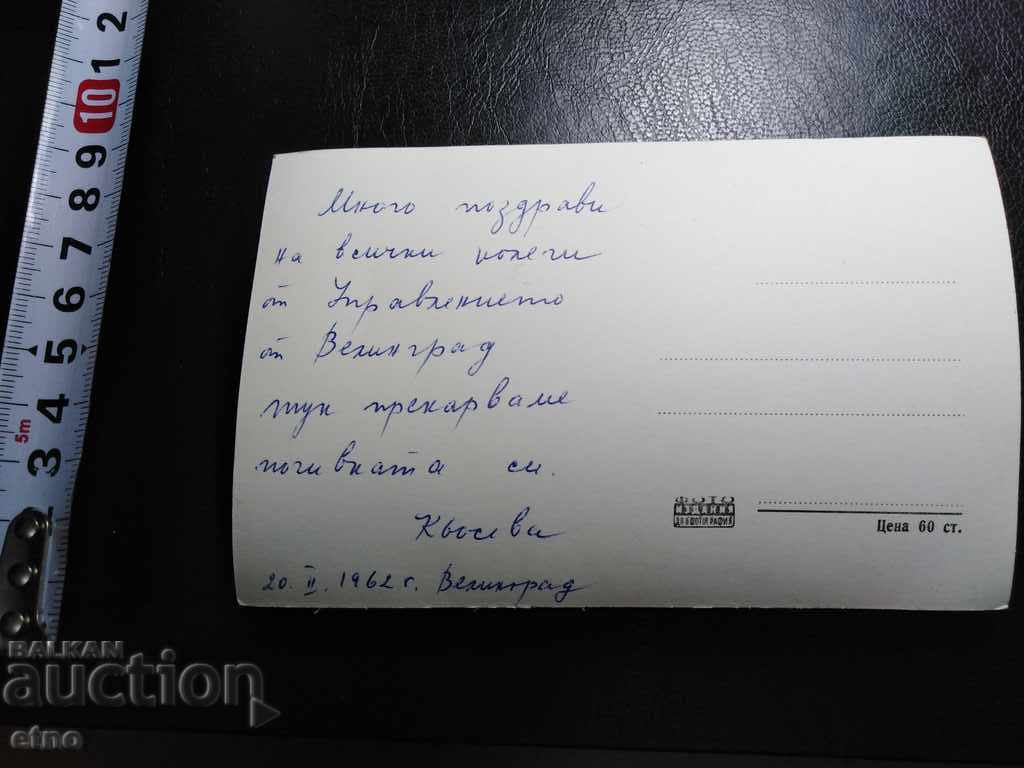 Много поздрави
на всички колеги
от Управлението
от Велинград
тук прекарваме
почивката си.
Кьосева
20. II. 1962 г. Велинград
ФОТО
Цена 60 ст.
2
1
10
9
8
7
6
5
4
3
5m
BALKAN
auction
etno